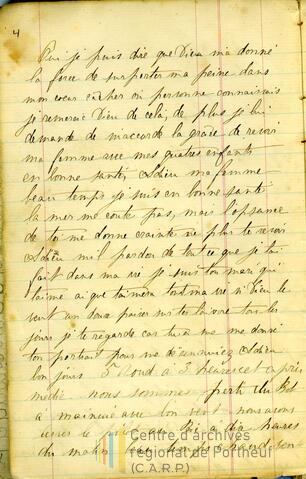 4
Oui je puis dire que Dieu m'a donné
la force de surporter ma peine dans
mon coeur cacher ou personne connaissais
je remercie Dieu de cela, de plus je lui
demande de m'accorde la grace de revoir
ma femme avec mes quatres enfants
en bonne santé, Adieu ma femme
beau temps je suis en bonne santé
la mer me coute pas, mais l'apsance
de toi me donne crainte ne plus te revoir
Adieu mil pardon de tout ce que je tai
fait dans ma vie je suis ton mari qui
t'aime ai que t'aimera tout ma vie si Dieu le
veut un doux baiser sur tes lèvre tous les
jours je te regarde car tu a me me donné
ton portrait pour me désennuiez Adieu
bon jours
midi nous sommes
a mainuie avec bon vent nous avons
a dix heures
du matin
Centre d'archives
régional de Portneuf
(C.A.R.P.)